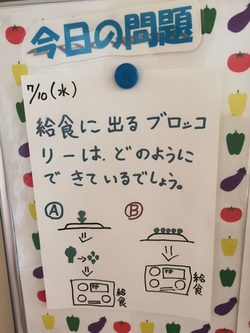 今日の問題
7/10(水)
給食に出るブロッコ
リーは、どのように
できているでしょう。
Ⓐ
Ⓑ
給食
給食